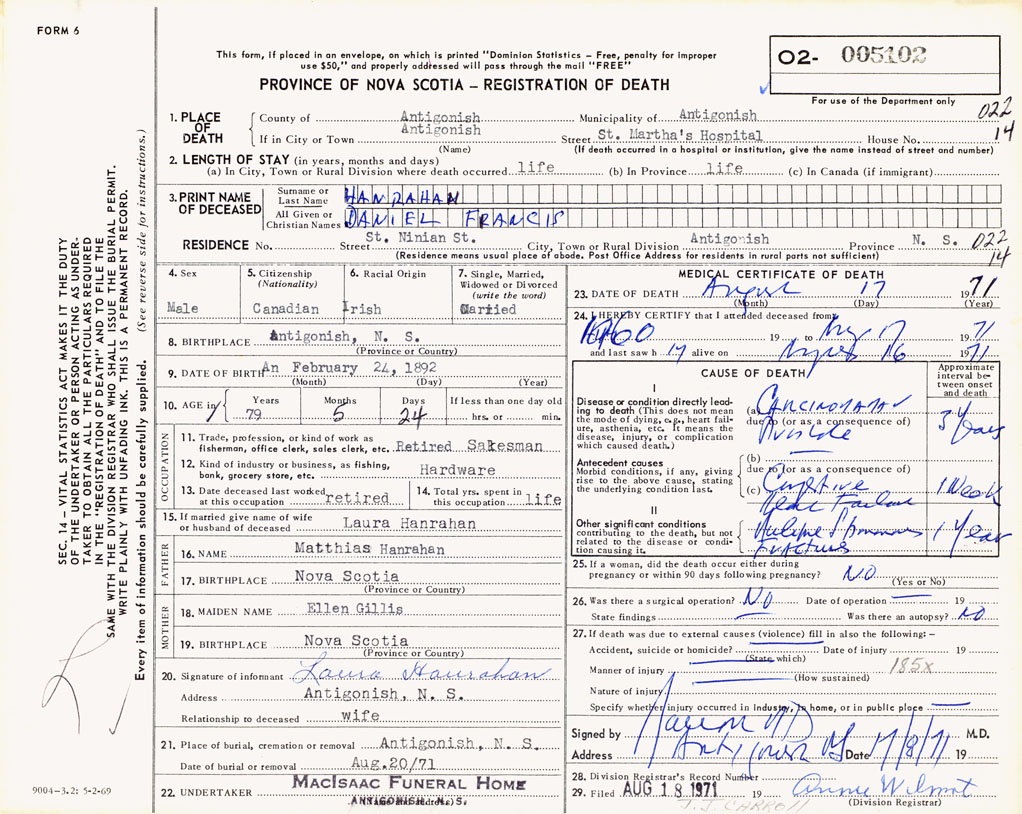 FORM 6
This form, if placed in an envelope, on which is printed "Dominion Statistics – Free, penalty for improper
use $50," and properly addressed will pass through the mail "FREE"
O2- 005102
For use of the Department only
PROVINCE OF NOVA SCOTIA – REGISTRATION OF DEATH
SEC. 14 – VITAL STATISTICS ACT MAKES IT THE DUTY
OF THE UNDERTAKER OR PERSON ACTING AS UNDER-
TAKER TO OBTAIN ALL THE PARTICULARS REQUIRED
IN THE "REGISTRATION OF DEATH" AND TO FILE THE
SAME WITH THE DIVISION REGISTRAR WHO SHALL ISSUE THE BURIAL PERMIT.
WRITE PLAINLY WITH UNFADING INK. THIS IS A PERMANENT RECORD.
Every item of information should be carefully supplied. (See reverse side for instructions.)
1. PLACE OF DEATH
County of Antigonish Municipality of Antigonish 022
If in City or Town Antigonish Street St. Martha's Hospital House No. 14
(Name) (If death occurred in a hospital or institution, give the name instead of street and number)
2. LENGTH OF STAY (in years, months and days)
(a) In City, Town or Rural Division where death occurred life (b) In Province life (c) In Canada (if immigrant)
3. PRINT NAME OF DECEASED
Surname or Last Name HANRAHAN
All Given or Christian Names DANIEL FRANCIS
RESIDENCE No. Street St. Ninian St. City, Town or Rural Division Antigonish Province N. S. 022
(Residence means usual place of abode. Post Office Address for residents in rural parts not sufficient) 14
4. Sex Male
5. Citizenship (Nationality) Canadian
6. Racial Origin Irish
7. Single, Married, Widowed or Divorced (write the word) Married
8. BIRTHPLACE Antigonish, N. S.
(Province or Country)
9. DATE OF BIRTH An February 24, 1892
(Month) (Day) (Year)
10. AGE in Years 79 Months 5 Days 24 If less than one day old hrs. or min.
OCCUPATION
11. Trade, profession, or kind of work as
fisherman, office clerk, sales clerk, etc. Retired Salesman
12. Kind of industry or business, as fishing,
bank, grocery store, etc. Hardware
13. Date deceased last worked
at this occupation retired
14. Total yrs. spent in
this occupation life
15. If married give name of wife
or husband of deceased Laura Hanrahan
FATHER
16. NAME Matthias Hanrahan
17. BIRTHPLACE Nova Scotia
(Province or Country)
MOTHER
18. MAIDEN NAME Ellen Gillis
19. BIRTHPLACE Nova Scotia
(Province or Country)
20. Signature of informant Laura Hanrahan
Address Antigonish, N. S.
Relationship to deceased wife
21. Place of burial, cremation or removal Antigonish, N. S.
Date of burial or removal Aug.20/71
22. UNDERTAKER MACISAAC FUNERAL HOME
(Name and address)
ANTIGONISH, N. S.
9004-3.2: 5-2-69
MEDICAL CERTIFICATE OF DEATH
23. DATE OF DEATH August 17 1971
(Month) (Day) (Year)
24. I HEREBY CERTIFY that I attended deceased from
1960 19 to Aug 17 1971
and last saw h alive on August 16 1971
CAUSE OF DEATH
Approximate interval between onset and death
I
Disease or condition directly lead-
ing to death (This does not mean
the mode of dying, e.g., heart fail-
ure, asthenia, etc. It means the
disease, injury, or complication
which caused death.)
(a) CARCINOMA 3 Years
due to (or as a consequence of)
Antecedent causes
Morbid conditions, if any, giving
rise to the above cause, stating
the underlying condition last.
(b)
due to (or as a consequence of)
(c) Congestive 1 Week
Heart Failure
II
Other significant conditions
contributing to the death, but not
related to the disease or condi-
tion causing it.
Multiple 1 Year
Fractures
25. If a woman, did the death occur either during
pregnancy or within 90 days following pregnancy? NO
(Yes or No)
26. Was there a surgical operation? NO Date of operation 19
State findings Was there an autopsy? NO
27. If death was due to external causes (violence) fill in also the following: –
Accident, suicide or homicide? Date of injury 19
(State which)
Manner of injury 185X
(How sustained)
Nature of injury
Specify whether injury occurred in industry, in home, or in public place
Signed by M.D.
Address Antigonish NS Date 17/8/71 19
28. Division Registrar's Record Number
29. Filed AUG 18 1971 19 Annie Wilmot
(Division Registrar)
J. J. CARROLL